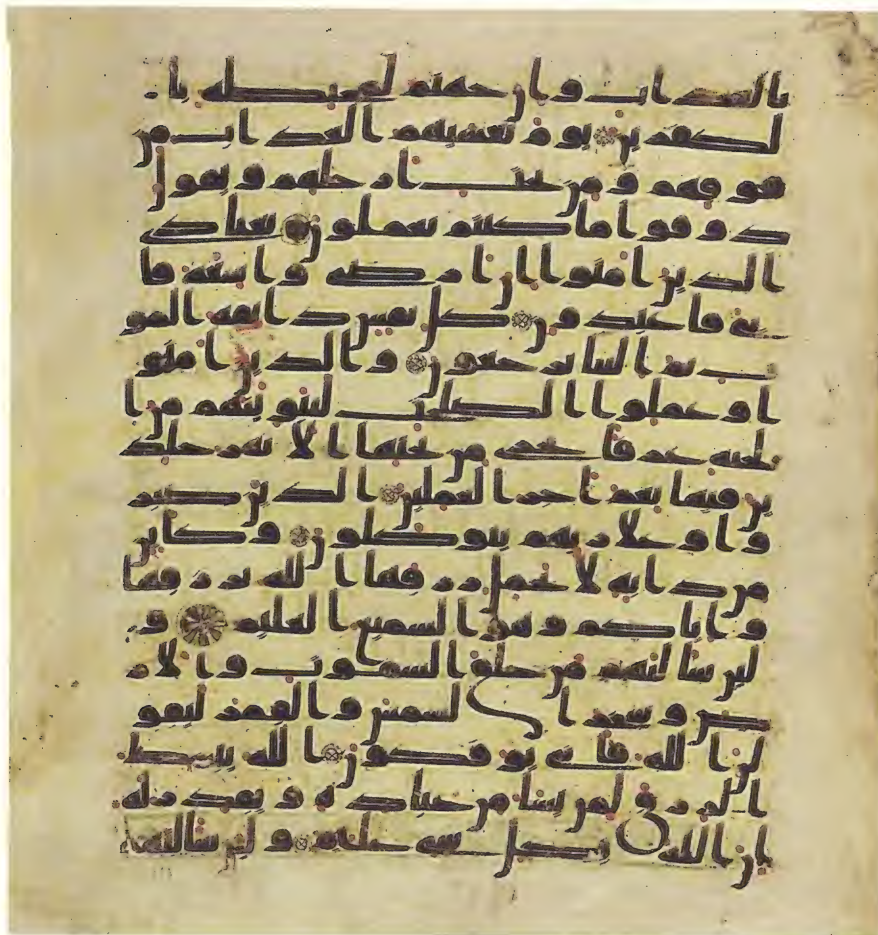 بالعذاب وان جهنم لمحيطة با
لكفرين يوم يغشيهم العذاب من
فوقهم ومن تحت ارجلهم ويقول
ذوقوا ما كنتم تعملون يعبادي
الذين امنوا ان ارضي واسعة فا
يي فاعبدون كل نفس ذايقة المو
ت ثم الينا ترجعون والذين امنو
ا وعملوا الصلحت لنبوينهم من ا
لجنة غرفا تجري من تحتها الانهر خلد
ين فيها نعم اجر العملين الذين صبر
وا وعلى ربهم يتوكلون وكاين
من دابة لا تحمل رزقها الله يرزقها
واياكم وهو السميع العليم و
لين سالتهم من خلق السموت والار
ض وسخر الشمس والقمر ليقو
لن الله فانى يوفكون الله يبسط
الرزق لمن يشا من عباده ويقدر له
ان الله بكل شي عليم ولين سالتهم